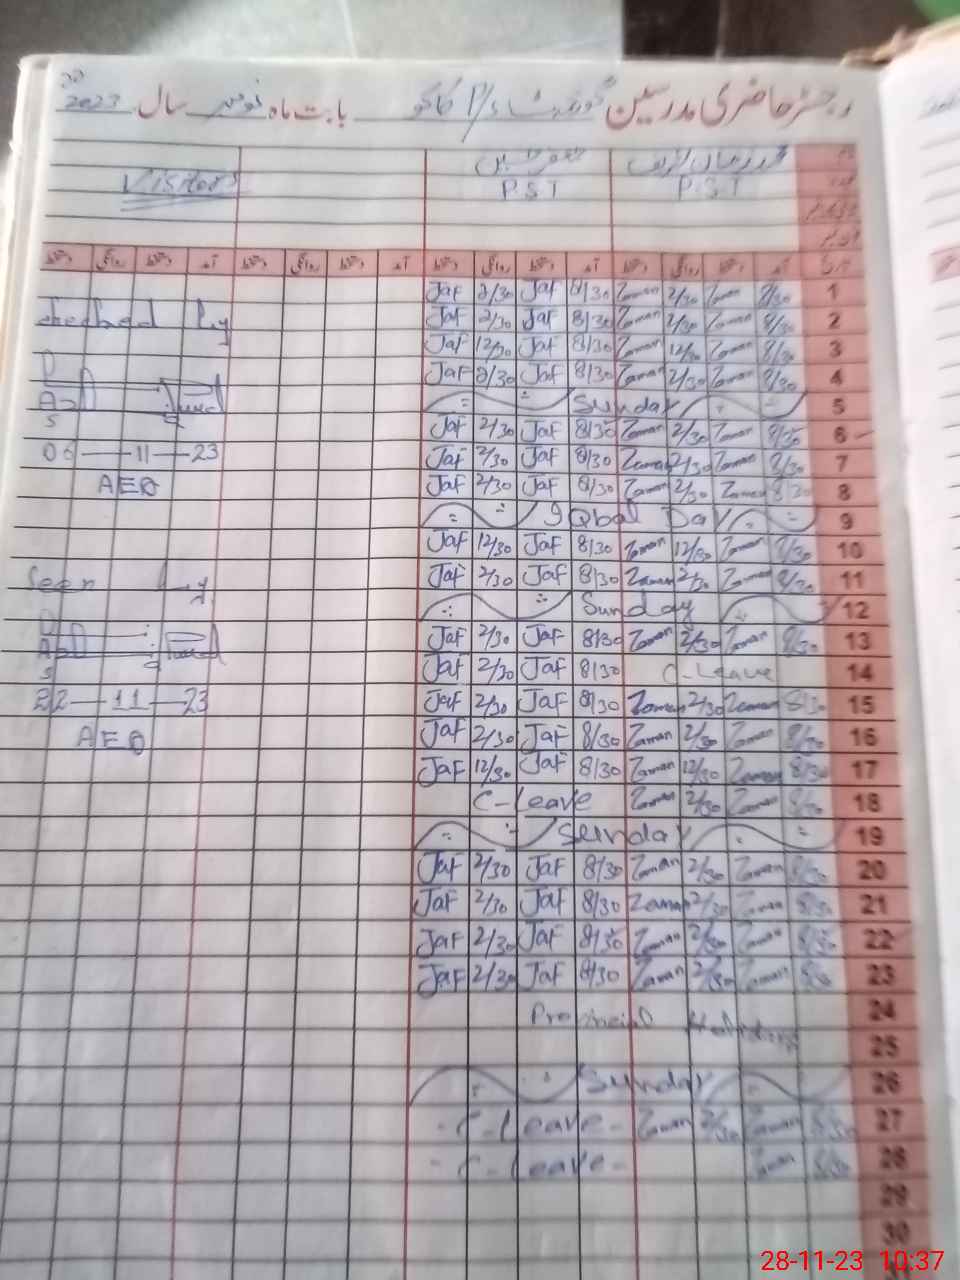 رجسٹر حاضری مدرسین گورنمنٹ P/S کاکو بابت ماہ نومبر سال 2023
Visitors
P.S.T P.S.T
آمد دستخط روانگی دستخط آمد دستخط روانگی دستخط آمد دستخط روانگی دستخط آمد دستخط روانگی دستخط
Jaf 2/30 Jaf 8/30 Zaman 2/30 Zaman 8/30 1
Checked by Jaf 2/30 Jaf 8/30 Zaman 2/30 Zaman 8/30 2
Jaf 12/30 Jaf 8/30 Zaman 12/30 Zaman 8/30 3
Jaf 2/30 Jaf 8/30 Zaman 2/30 Zaman 8/30 4
Sunday 5
Jaf 2/30 Jaf 8/30 Zaman 2/30 Zaman 8/30 6
06-11-23 Jaf 2/30 Jaf 8/30 Zaman 2/30 Zaman 8/30 7
AEO Jaf 2/30 Jaf 8/30 Zaman 2/30 Zaman 8/30 8
Iqbal Day 9
Jaf 12/30 Jaf 8/30 Zaman 12/30 Zaman 8/30 10
Seen by Jaf 2/30 Jaf 8/30 Zaman 2/30 Zaman 8/30 11
Sunday 12
Jaf 2/30 Jaf 8/30 Zaman 2/30 Zaman 8/30 13
Jaf 2/30 Jaf 8/30 C-Leave 14
22-11-23 Jaf 2/30 Jaf 8/30 Zaman 2/30 Zaman 8/30 15
AEO Jaf 2/30 Jaf 8/30 Zaman 2/30 Zaman 8/30 16
Jaf 12/30 Jaf 8/30 Zaman 12/30 Zaman 8/30 17
C-Leave Zaman 2/30 Zaman 8/30 18
Sunday 19
Jaf 2/30 Jaf 8/30 Zaman 2/30 Zaman 8/30 20
Jaf 2/30 Jaf 8/30 Zaman 2/30 Zaman 8/30 21
Jaf 2/30 Jaf 8/30 Zaman 2/30 Zaman 8/30 22
Jaf 2/30 Jaf 8/30 Zaman 2/30 Zaman 8/30 23
Provincial Holidays 24
25
Sunday 26
- C-Leave - Zaman 2/30 Zaman 8/30 27
- C-Leave - Zaman 8/30 28
29
30
28-11-23 10:37